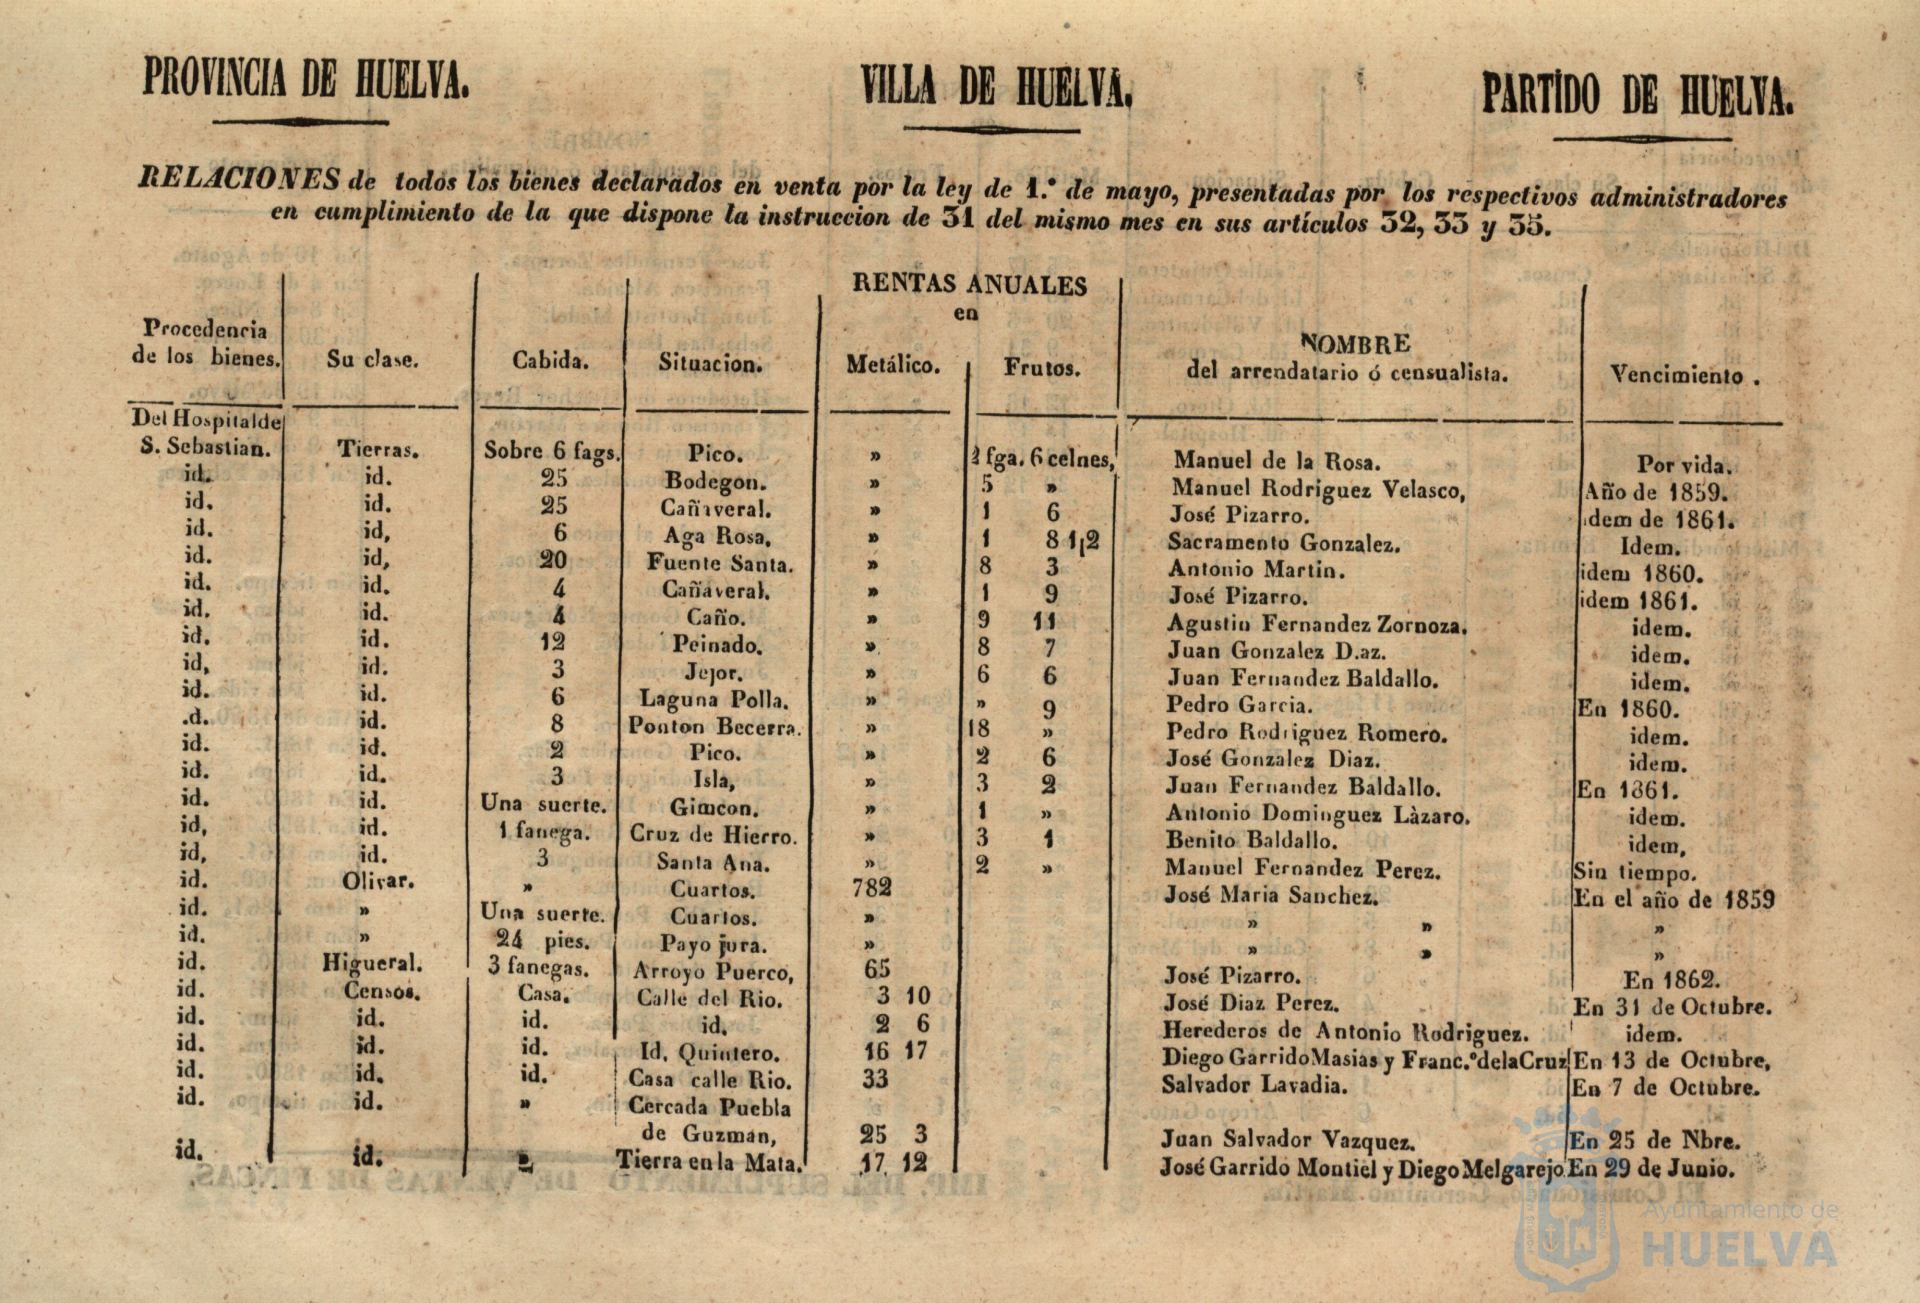 PROVINCIA DE HUELVA. VILLA DE HUELVA. PARTIDO DE HUELVA.
RELACIONES de todos los bienes declarados en venta por la ley de 1.º de mayo, presentadas por los respectivos administradores
en cumplimiento de la que dispone la instruccion de 31 del mismo mes en sus artículos 32, 33 y 35.
RENTAS ANUALES
en
Procedencia de los bienes. Su clase. Cabida. Situacion. Metálico. Frutos. NOMBRE del arrendatario ó censualista. Vencimiento.
Del Hospital de
S. Sebastian. Tierras. Sobre 6 fags. Pico. » fga. 6 celnes, Manuel de la Rosa. Por vida.
id. id. 25 Bodegon. » 5 » Manuel Rodriguez Velasco, Año de 1859.
id. id. 25 Cañaveral. » 1 6 José Pizarro. idem de 1861.
id. id, 6 Aga Rosa, » 1 8 1¡2 Sacramento Gonzalez. Idem.
id. id, 20 Fuente Santa. » 8 3 Antonio Martin. idem 1860.
id. id. 4 Cañaveral. » 1 9 José Pizarro. idem 1861.
id. id. 4 Caño. » 9 11 Agustin Fernandez Zornoza. idem.
id. id. 12 Peinado. » 8 7 Juan Gonzalez D.az. idem.
id, id. 3 Jejor. » 6 6 Juan Fernandez Baldallo. idem.
id. id. 6 Laguna Polla. » » 9 Pedro Garcia. En 1860.
.d. id. 8 Ponton Becerra. » 18 » Pedro Rodriguez Romero. idem.
id. id. 2 Pico. » 2 6 José Gonzalez Diaz. idem.
id. id. 3 Isla, » 3 2 Juan Fernandez Baldallo. En 1861.
id. id. Una suerte. Gimcon. » 1 » Antonio Dominguez Làzaro. idem.
id, id. 1 fanega. Cruz de Hierro. » 3 1 Benito Baldallo. idem,
id, id. 3 Santa Ana. » 2 » Manuel Fernandez Perez. Sin tiempo.
id. Olivar. » Cuartos. 782 José Maria Sanchez. En el año de 1859
id. » Una suerte. Cuartos. » » » »
id. » 24 pies. Payo jura. » » » »
id. Higueral. 3 fanegas. Arroyo Puerco, 65 José Pizarro. En 1862.
id. Censos. Casa. Calle del Rio. 3 10 José Diaz Perez. En 31 de Octubre.
id. id. id. id. 2 6 Herederos de Antonio Rodriguez. idem.
id. id. id. Id, Quintero. 16 17 Diego Garrido Masias y Franc.º de la Cruz En 13 de Octubre,
id. id. id. Casa calle Rio. 33 Salvador Lavadia. En 7 de Octubre.
id. id. » Cercada Puebla
de Guzman, 25 3 Juan Salvador Vazquez. En 25 de Nbre.
id. id. » Tierra en la Mata. 17 12 José Garrido Montiel y Diego Melgarejo En 29 de Junio.
Ayuntamiento de
HUELVA